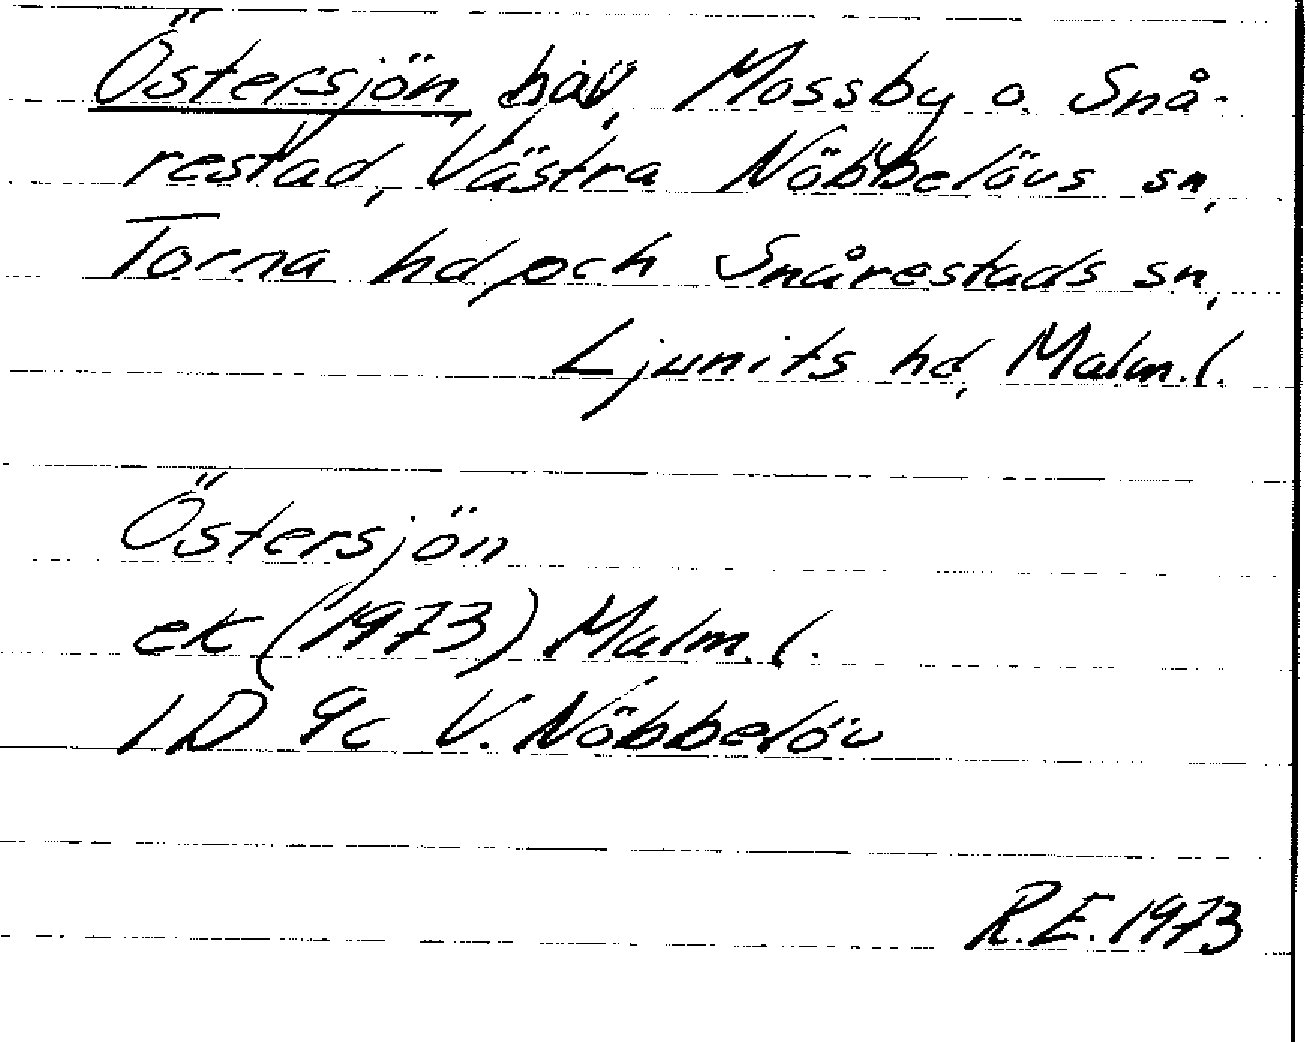 Östersjön, hav, Mossby o. Snå-
restad, Västra Nöbbelövs sn,
Torna hd, och Snårestads sn,
Ljunits hd, Malm.l.
Östersjön
ek (1973) Malm.l.
1D 9c V. Nöbbelöv
R.E. 1973